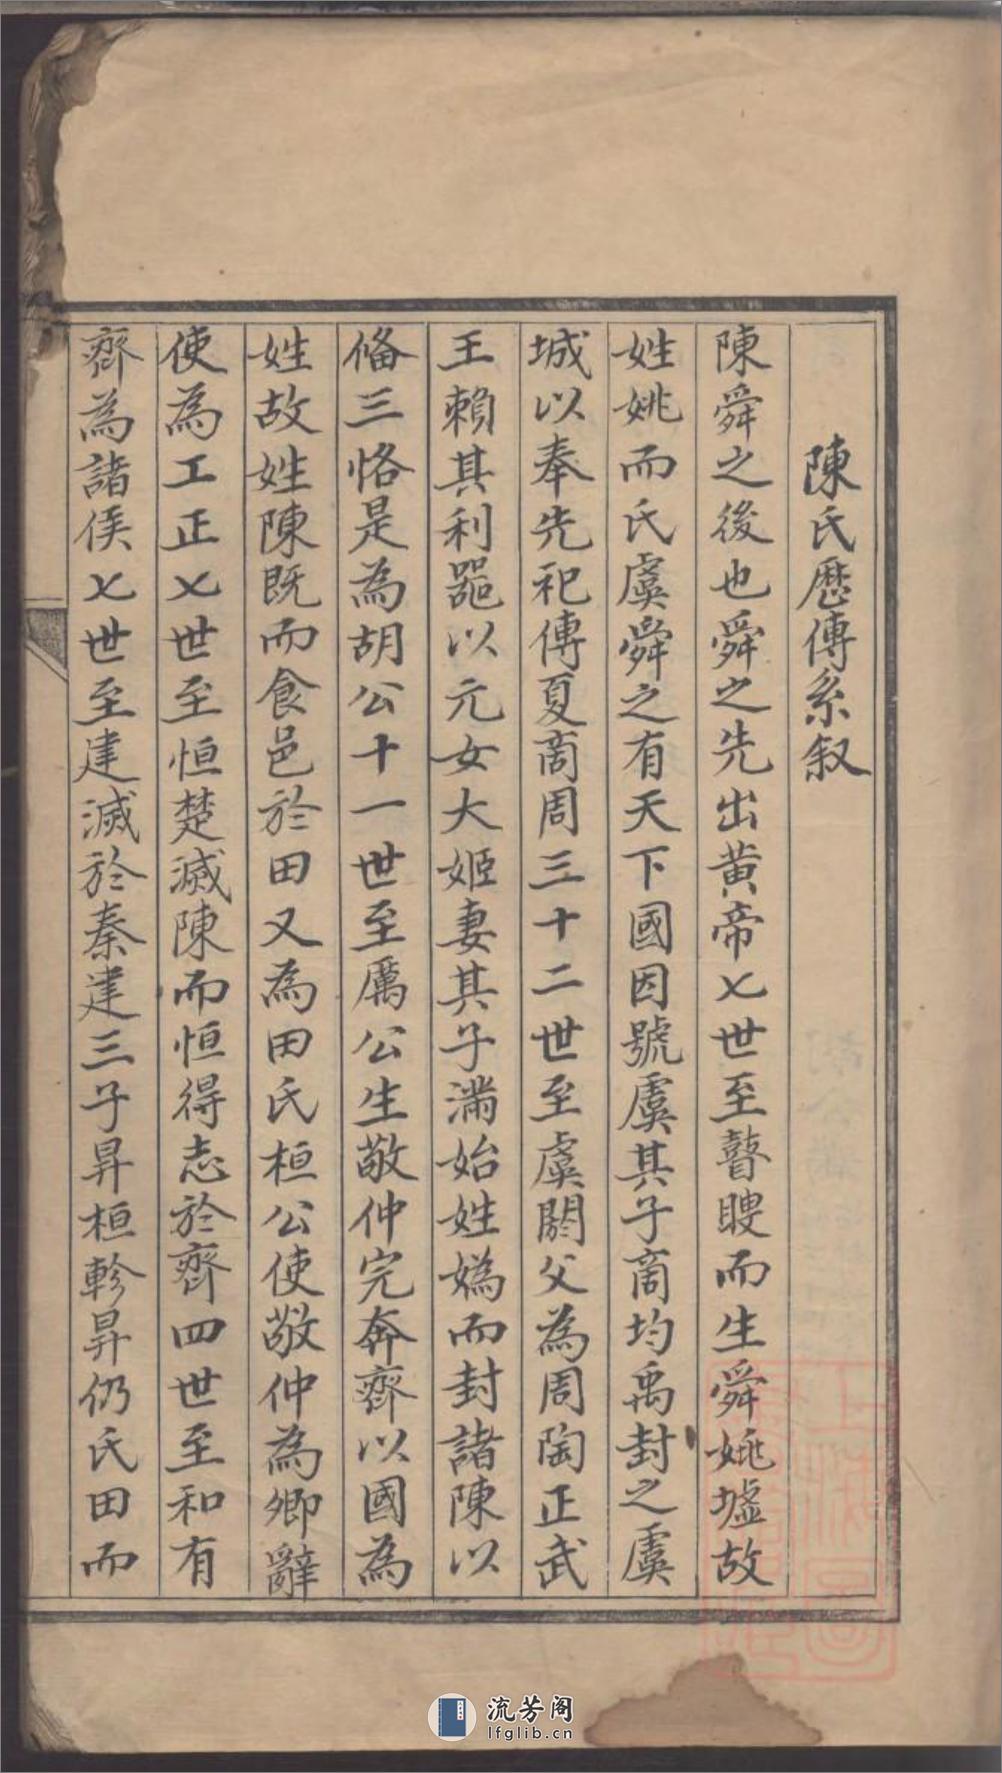 陳氏歷傳系叙
陳舜之後也舜之先出黃帝七世至瞽瞍而生舜姚墟故
姓姚而氏虞舜之有天下國因號虞其子商均禹封之虞
城以奉先祀傳夏商周三十二世至虞閼父為周陶正武
王賴其利器以元女大姬妻其子滿始姓媯而封諸陳以
備三恪是為胡公十一世至厲公生敬仲完奔齊以國為
姓故姓陳既而食邑於田又為田氏桓公使敬仲為卿辭
使為工正七世至恒楚滅陳而恒得志於齊四世至和有
齊為諸侯七世至建滅於秦建三子昇桓軫昇仍氏田而
流芳阁
lfglib.cn